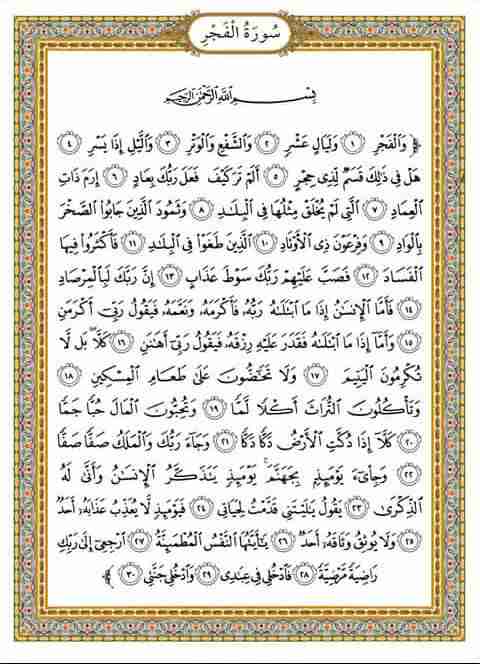 سُورَةُ الْفَجْرِ
بِسْمِ اللَّهِ الرَّحْمَٰنِ الرَّحِيمِ
﴿ وَالْفَجْرِ ١ وَلَيَالٍ عَشْرٍ ٢ وَالشَّفْعِ وَالْوَتْرِ ٣ وَاللَّيْلِ إِذَا يَسْرِ ٤
هَلْ فِي ذَٰلِكَ قَسَمٌ لِّذِي حِجْرٍ ٥ أَلَمْ تَرَ كَيْفَ فَعَلَ رَبُّكَ بِعَادٍ ٦ إِرَمَ ذَاتِ
الْعِمَادِ ٧ الَّتِي لَمْ يُخْلَقْ مِثْلُهَا فِي الْبِلَٰدِ ٨ وَثَمُودَ الَّذِينَ جَابُوا الصَّخْرَ
بِالْوَادِ ٩ وَفِرْعَوْنَ ذِي الْأَوْتَادِ ١٠ الَّذِينَ طَغَوْا فِي الْبِلَٰدِ ١١ فَأَكْثَرُوا فِيهَا
الْفَسَادَ ١٢ فَصَبَّ عَلَيْهِمْ رَبُّكَ سَوْطَ عَذَابٍ ١٣ إِنَّ رَبَّكَ لَبِالْمِرْصَادِ
١٤ فَأَمَّا الْإِنسَٰنُ إِذَا مَا ابْتَلَىٰهُ رَبُّهُ فَأَكْرَمَهُ وَنَعَّمَهُ فَيَقُولُ رَبِّي أَكْرَمَنِ
١٥ وَأَمَّا إِذَا مَا ابْتَلَىٰهُ فَقَدَرَ عَلَيْهِ رِزْقَهُ فَيَقُولُ رَبِّي أَهَٰنَنِ ١٦ كَلَّا بَل لَّا
تُكْرِمُونَ الْيَتِيمَ ١٧ وَلَا تَحَٰضُّونَ عَلَىٰ طَعَامِ الْمِسْكِينِ ١٨
وَتَأْكُلُونَ التُّرَاثَ أَكْلًا لَّمًّا ١٩ وَتُحِبُّونَ الْمَالَ حُبًّا جَمًّا
٢٠ كَلَّا إِذَا دُكَّتِ الْأَرْضُ دَكًّا دَكًّا ٢١ وَجَاءَ رَبُّكَ وَالْمَلَكُ صَفًّا صَفًّا
٢٢ وَجِايءَ يَوْمَئِذٍ بِجَهَنَّمَ يَوْمَئِذٍ يَتَذَكَّرُ الْإِنسَٰنُ وَأَنَّىٰ لَهُ
الذِّكْرَىٰ ٢٣ يَقُولُ يَٰلَيْتَنِي قَدَّمْتُ لِحَيَاتِي ٢٤ فَيَوْمَئِذٍ لَّا يُعَذِّبُ عَذَابَهُ أَحَدٌ
٢٥ وَلَا يُوثِقُ وَثَاقَهُ أَحَدٌ ٢٦ يَٰأَيَّتُهَا النَّفْسُ الْمُطْمَئِنَّةُ ٢٧ ارْجِعِي إِلَىٰ رَبِّكِ
رَاضِيَةً مَّرْضِيَّةً ٢٨ فَادْخُلِي فِي عِبَٰدِي ٢٩ وَادْخُلِي جَنَّتِي ٣٠ ﴾